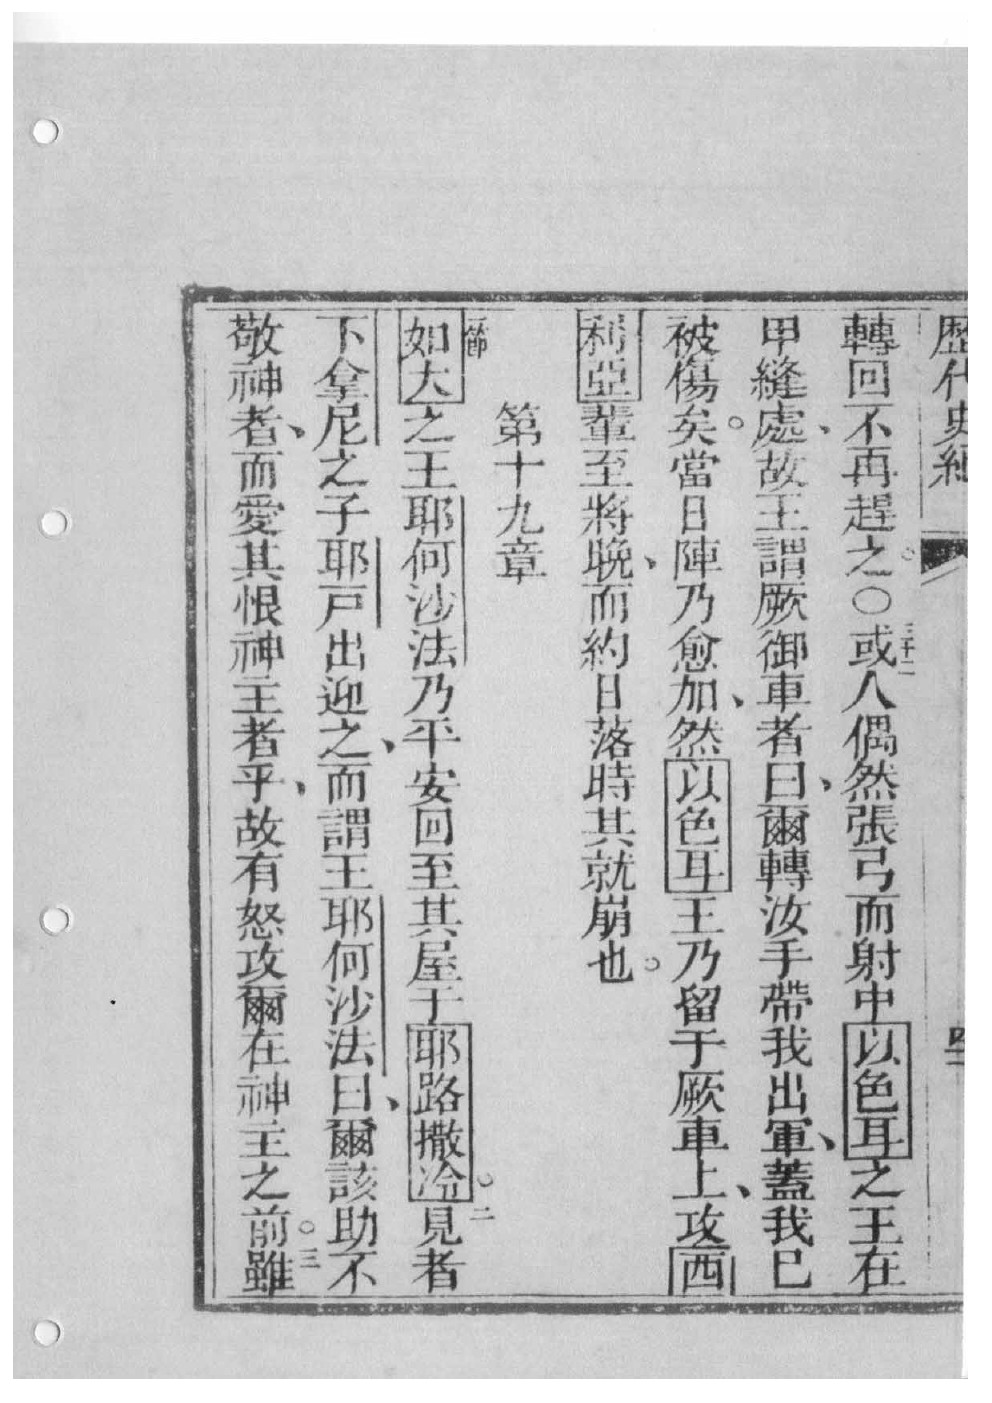 歴代史紀
轉回不再趕之。〇三十三或人偶然張弓而射中以色耳之王在
甲縫處、故王謂厥御車者曰、爾轉汝手帶我出軍、蓋我已
被傷矣。當日陣乃愈加、然以色耳王乃留于厥車上、攻西
利亞輩至將晚、而約日落時其就崩也。
第十九章
一節如大之王耶何沙法乃平安回至其屋于耶路撒冷。二見者
下拿尼之子耶戸出迎之、而謂王耶何沙法曰、爾該助不
敬神者、而愛其恨神主者乎、故有怒攻爾在神主之前。三雖